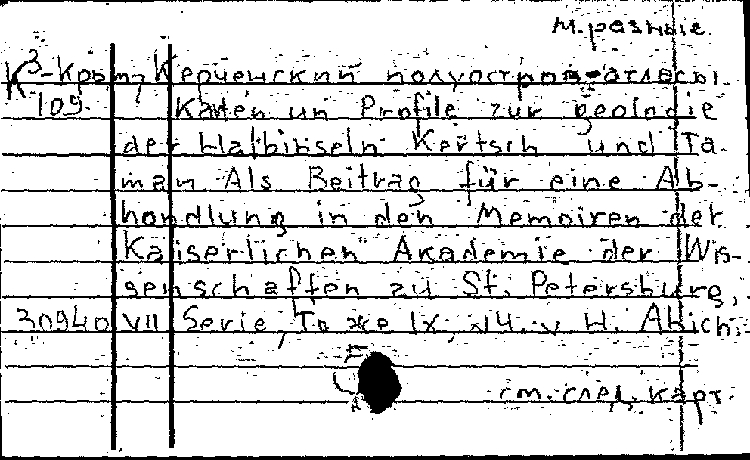 м. разные.
К3-Крым, Керченский полуостров-атласы.
109. Karten un Profile zur geologie
der Halbinseln Kertsch und Ta-
man Als Beitrag für eine Ab-
handlung in den Memoiren der
Kaiserlichen Akademie der Wis-
senschaften zu St. Petersburg,
30940 VII Serie, To же IX, №4. v H. Abich.
см. след. карт.